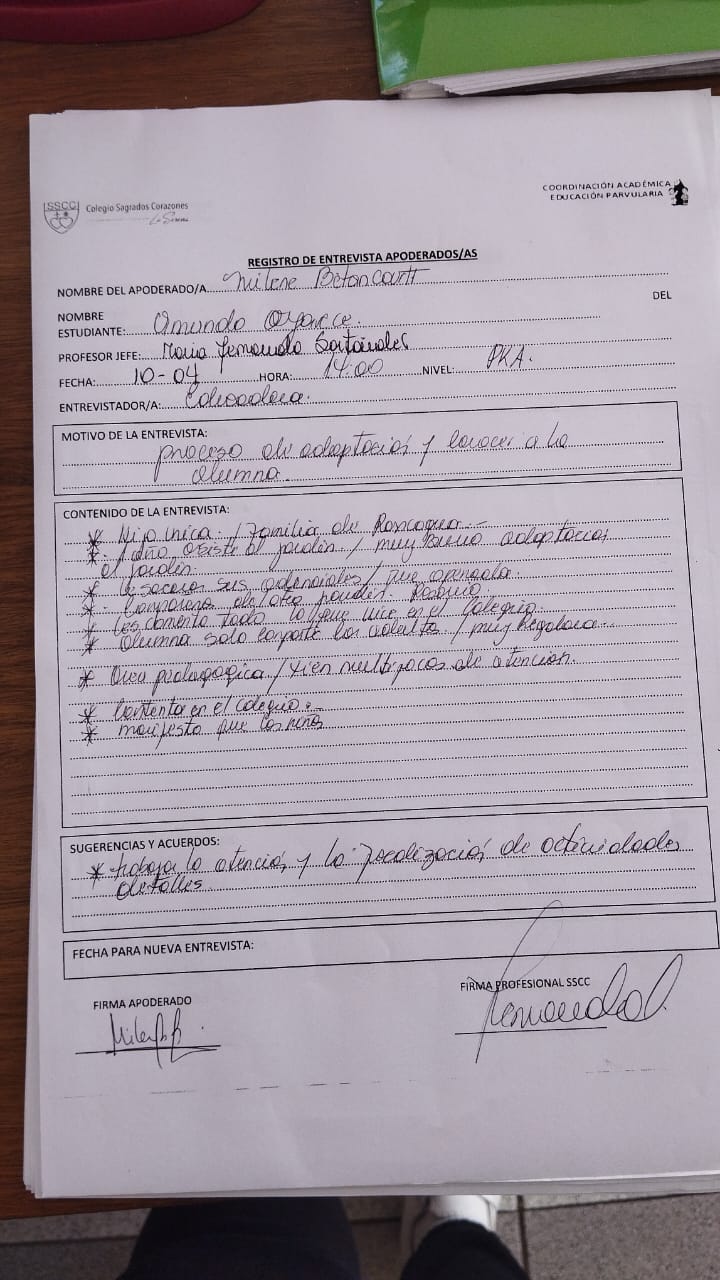 SSCC
Colegio Sagrados Corazones
La Serena
COORDINACIÓN ACADÉMICA
EDUCACIÓN PARVULARIA
REGISTRO DE ENTREVISTA APODERADOS/AS
NOMBRE DEL APODERADO/A Milene Betancourt
NOMBRE DEL
ESTUDIANTE:
PROFESOR JEFE: Maria Fernanda
FECHA: 10-04 HORA: 14:00 NIVEL: PKA.
ENTREVISTADOR/A: Educadora.
MOTIVO DE LA ENTREVISTA:
proceso de adaptación y conocer a la
alumna.
CONTENIDO DE LA ENTREVISTA:
* Hija única. / Familia de Rancagua.
* 1 año asiste al jardín / muy buena adaptación
al jardín.
* sus / que
* otro jardín.
* Les comenta todo lo que hice en el Colegio.
* Alumna solo comparte con adultos / muy Regalona.
* Area pedagógica / de atención.
* Contenta en el colegio.
* manifesto que los niños
SUGERENCIAS Y ACUERDOS:
* trabajar la atención y la focalización de actividades
detalles
FECHA PARA NUEVA ENTREVISTA:
FIRMA APODERADO
FIRMA PROFESIONAL SSCC